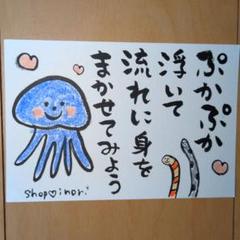 ぷかぷか
浮いて
流れに身を
まかせてみよう
shop♡inori